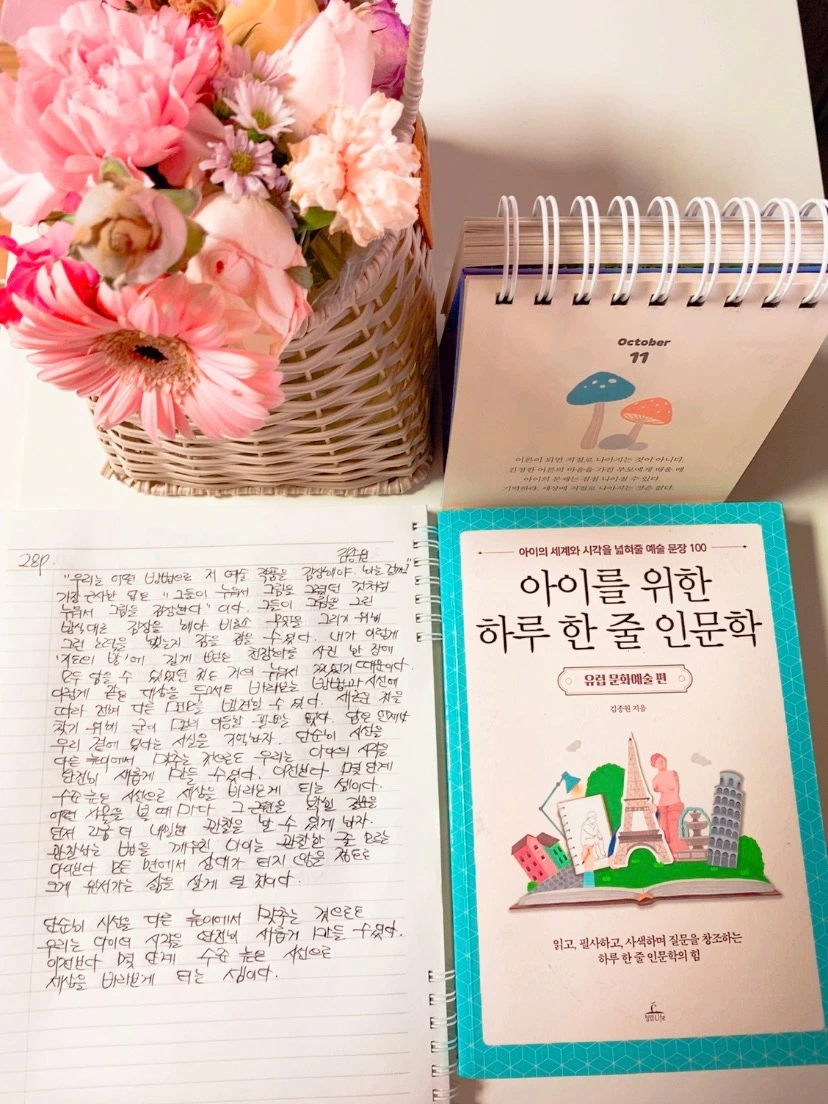 October
11
어른이 되면 저절로 나아지는 것이 아니다.
진정한 어른의 마음을 가진 부모에게 배울 때
아이의 문제는 점점 나아질 수 있다.
기억하라, 세상에 저절로 나아지는 것은 없다.
28p.
김종원
"우리는 어떤 방법으로 저 예술 작품을 감상해야
가장 근사한 답은 "그들이 누워서 그림을 그렸던 것처럼
누워서 그림을 감상한다" 이다. 그들이 그림을 그린
방식대로 감상을 해야 비로소 무엇을 그리기 위해
그런 노력을 했는지 감을 잡을 수 있다. 내가 이렇게
에 길게 뻗은 천장화를 사진 한 장에
모두 담을 수 있었던 것도 거의 누워서 찍었기 때문이다.
이렇게 같은 대상을 두고서도 바라보는 방법과 시선에
따라 전혀 다른 면을 발견할 수 있다. 새로운 것을
찾기 위해 굳이 멀리 이동할 필요는 없다. 답은 언제나
우리 곁에 있다는 사실을 기억하자. 단순히 시선을
다른 높이에서 맞추는 것으로도 우리는 아이의 시각을
완전히 새롭게 만들 수 있다. 이전보다 몇 단계
수준 높은 시선으로 세상을 바라보게 되는 셈이다.
어떤 사물을 볼 때마다 그
던져 조금 더 내밀한 관찰을 할 수 있게 하자.
관찰하는 법을 깨우친 아이는 관찰할 줄 모르는
아이보다 모든 면에서 상대가 되지 않을 정도로
크게 앞서가는 삶을 살게 될 것이다.
단순히 시선을 다른 높이에서 맞추는 것으로도
우리는 아이의 시각을 완전히 새롭게 만들 수 있다.
이전보다 몇 단계 수준 높은 시선으로
세상을 바라보게 되는 셈이다.
아이의 세계와 시각을 넓혀줄 예술 문장 100
아이를 위한
하루 한 줄 인문학
유럽 문화예술 편
김종원 지음
읽고, 필사하고, 사색하며 질문을 창조하는
하루 한 줄 인문학의 힘
청림Life